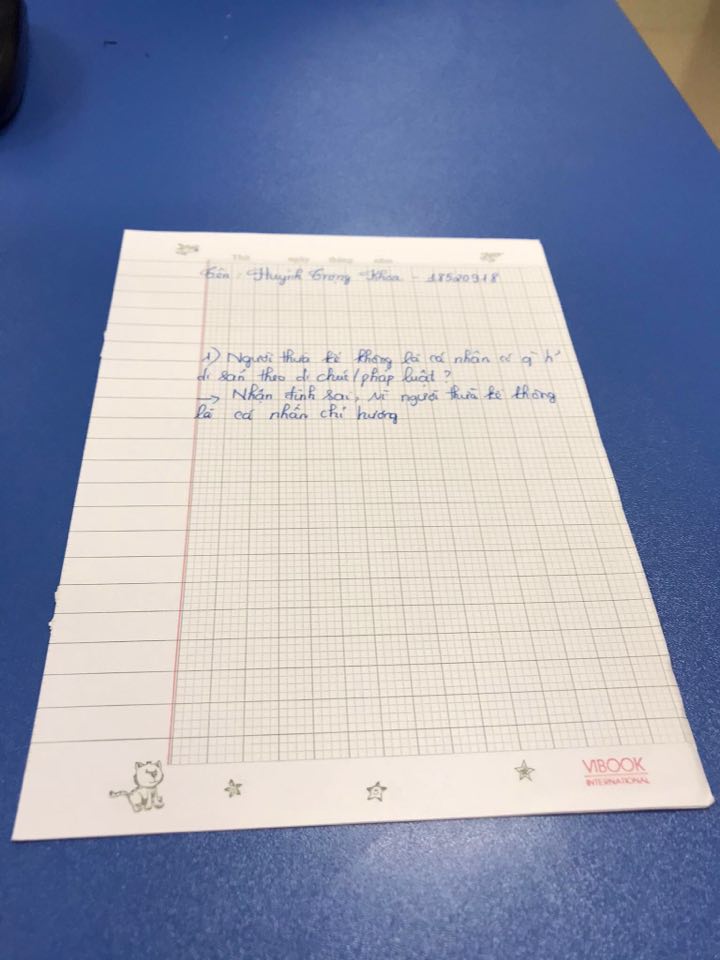 Thứ ngày tháng năm
Tên : Huỳnh Trọng Khoa - 18520918
1) Người thừa kế không là cá nhân có q̀ h̉
di sản theo di chúc/pháp luật ?
→ Nhận định sai, vì người thừa kế không
là cá nhân chỉ hưởng
VIBOOK
INTERNATIONAL